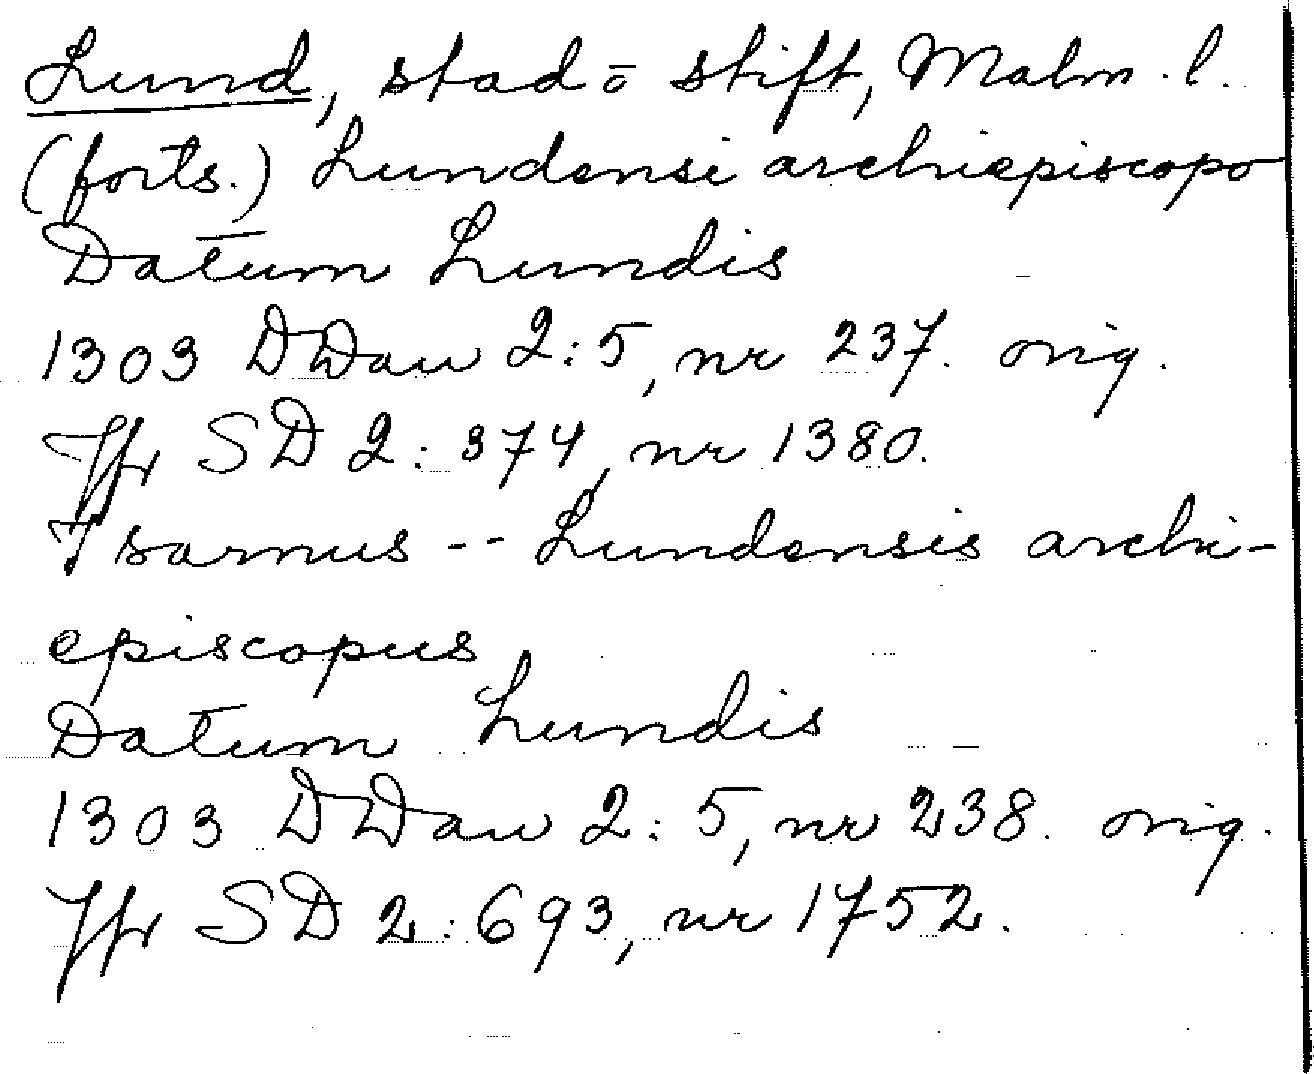 Lund, stad o stift, Malm. l.
(forts.) Lundensi archiepiscopo
Datum Lundis
1303 DDan 2:5, nr 237. orig.
Jfr SD 2: 374, nr 1380.
Isarnus -- Lundensis archi-
episcopus
Datum Lundis
1303 DDan 2: 5, nr 238. orig.
Jfr SD 2: 693, nr 1752.